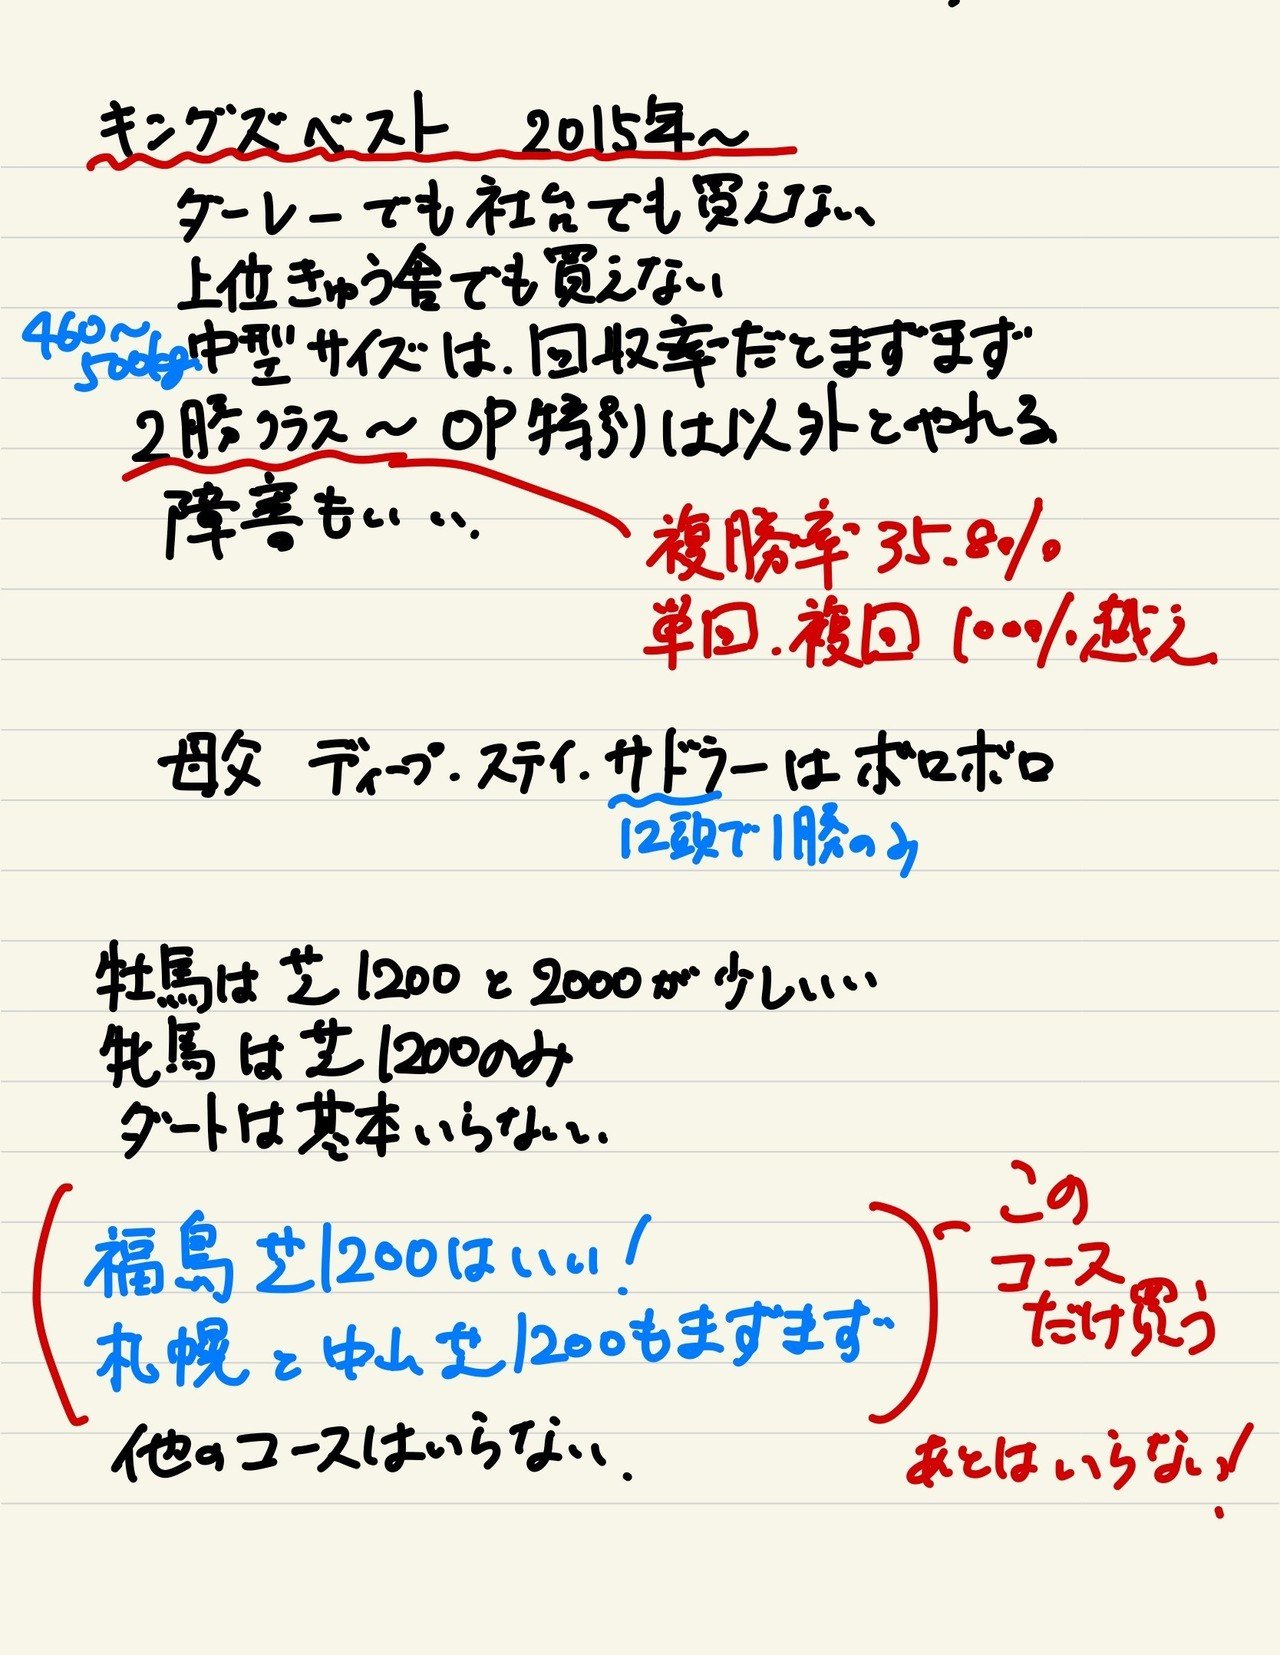 キングズベスト 2015年～
ダーレーでも社台でも買えない
上位きゅう舎でも買えない
460～
500kg
中型サイズは.回収率だとまずまず
2勝クラス～OP特別は以外とやれる
障害もいい.
複勝率35.8%
単回.複回 100%越え
母父 ディープ.ステイ.サドラーはボロボロ
12頭で1勝のみ
牡馬は芝1200と2000が少しいい
牝馬は芝1200のみ
ダートは基本いらない.
福島芝1200はいい!
札幌と中山芝1200もまずまず
この
コース
だけ買う
他のコースはいらない.
あとはいらない!